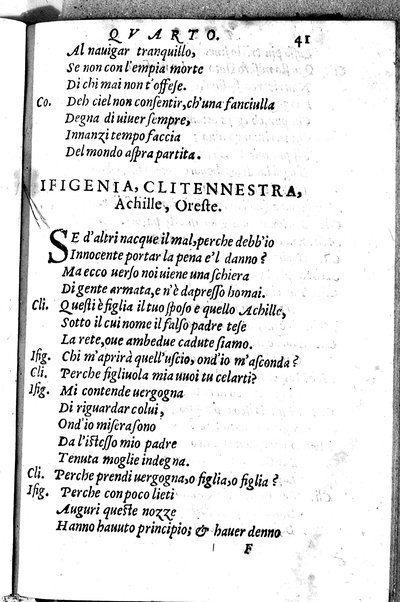 QVARTO. 41
Al nauigar tranquillo,
Se non con l'empia morte
Di chi mai non t'offese.
Co. Deh ciel non consentir, ch'una fanciulla
Degna di uiuer sempre,
Innanzi tempo faccia
Del mondo aspra partita.
IFIGENIA, CLITENNESTRA,
Achille, Oreste.
SE d'altri nacque il mal, perche debb'io
Innocente portar la pena e'l danno?
Ma ecco uerso noi uiene una schiera
Di gente armata, e n'è dapresso homai.
Cli. Questi è figlia il tuo sposo e quello Achille,
Sotto il cui nome il falso padre tese
La rete, oue ambedue cadute siamo.
Ifig. Chi m'aprirà quell'uscio, ond'io m'asconda?
Cli. Perche figliuola mia uuoi tu celarti?
Ifig. Mi contende uergogna
Di riguardar colui,
Ond'io misera sono
Da l'istesso mio padre
Tenuta moglie indegna.
Cli. Perche prendi uergogna, o figlia, o figlia?
Ifig. Perche con poco lieti
Auguri queste nozze
Hanno hauuto principio; & hauer denno
F